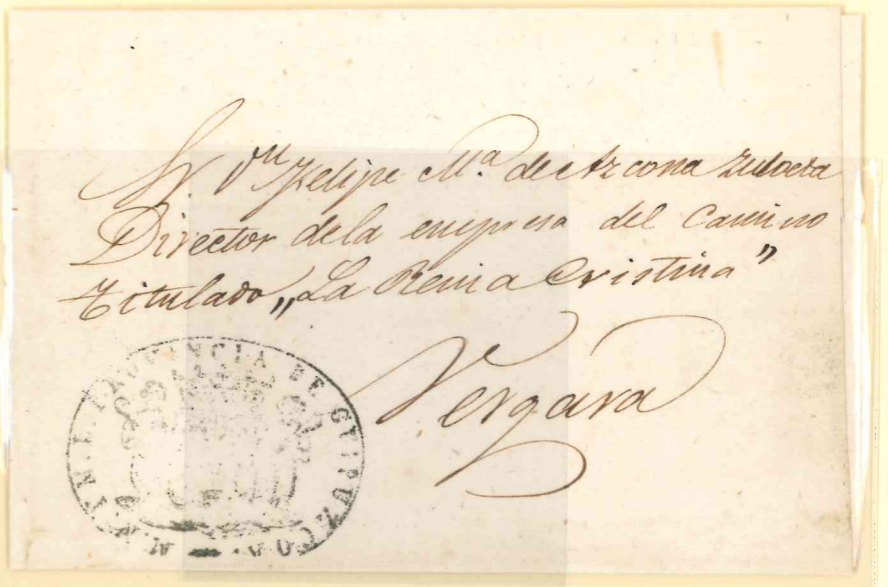 Sr. Dn Felipe Ma. de Azcona Zuloeta
Director de la empresa del Camino
Titulado „La Reina Cristina”
Vergara
M. N. Y M. L. PROVINCIA DE GUIPUZCOA